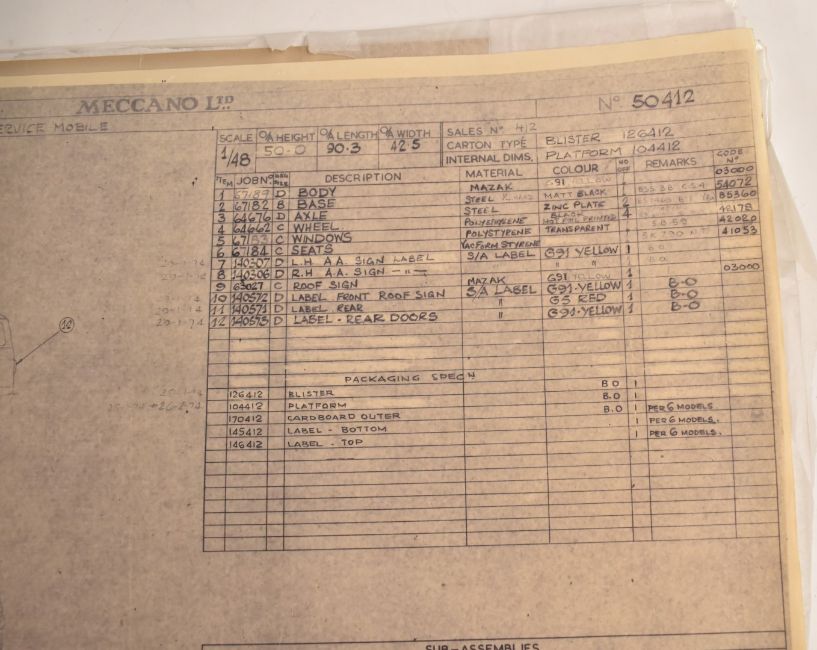 MECCANO LTD
No 50412
SERVICE MOBILE
SCALE O/A HEIGHT O/A LENGTH O/A WIDTH SALES No 412
1/48 50.0 90.3 42.5 CARTON TYPE BLISTER 126412
INTERNAL DIMS. PLATFORM 104412
ITEM JOB No. DESCRIPTION MATERIAL COLOUR NO OFF REMARKS CODE No
1 67189 D BODY MAZAK G91 YELLOW 1 03000
2 67182 B BASE STEEL MATT BLACK 1 54072
3 64676 D AXLE STEEL ZINC PLATE 2 85360
4 64662 C WHEEL POLYSTYRENE BLACK 4
5 C WINDOWS POLYSTYRENE TRANSPARENT 1 42020
6 67184 C SEATS VACFORM STYRENE 41053
7 140307 D L.H A.A. SIGN LABEL S/A LABEL G91 YELLOW 1 B.O
8 140306 D R.H A.A. SIGN -"- " " B.O
9 63027 C ROOF SIGN MAZAK G91 YELLOW 1 03000
10 140572 D LABEL FRONT ROOF SIGN S/A LABEL G91-YELLOW 1 B-O
11 140571 D LABEL REAR " G5 RED 1 B-O
12 140573 D LABEL - REAR DOORS " G91-YELLOW 1 B-O
12
PACKAGING SPECN
126412 BLISTER B.O 1
104412 PLATFORM B.O 1
170412 CARDBOARD OUTER B.O 1 PER 6 MODELS
145412 LABEL - BOTTOM 1 PER 6 MODELS.
146412 LABEL - TOP 1 PER 6 MODELS.
SUB-ASSEMBLIES